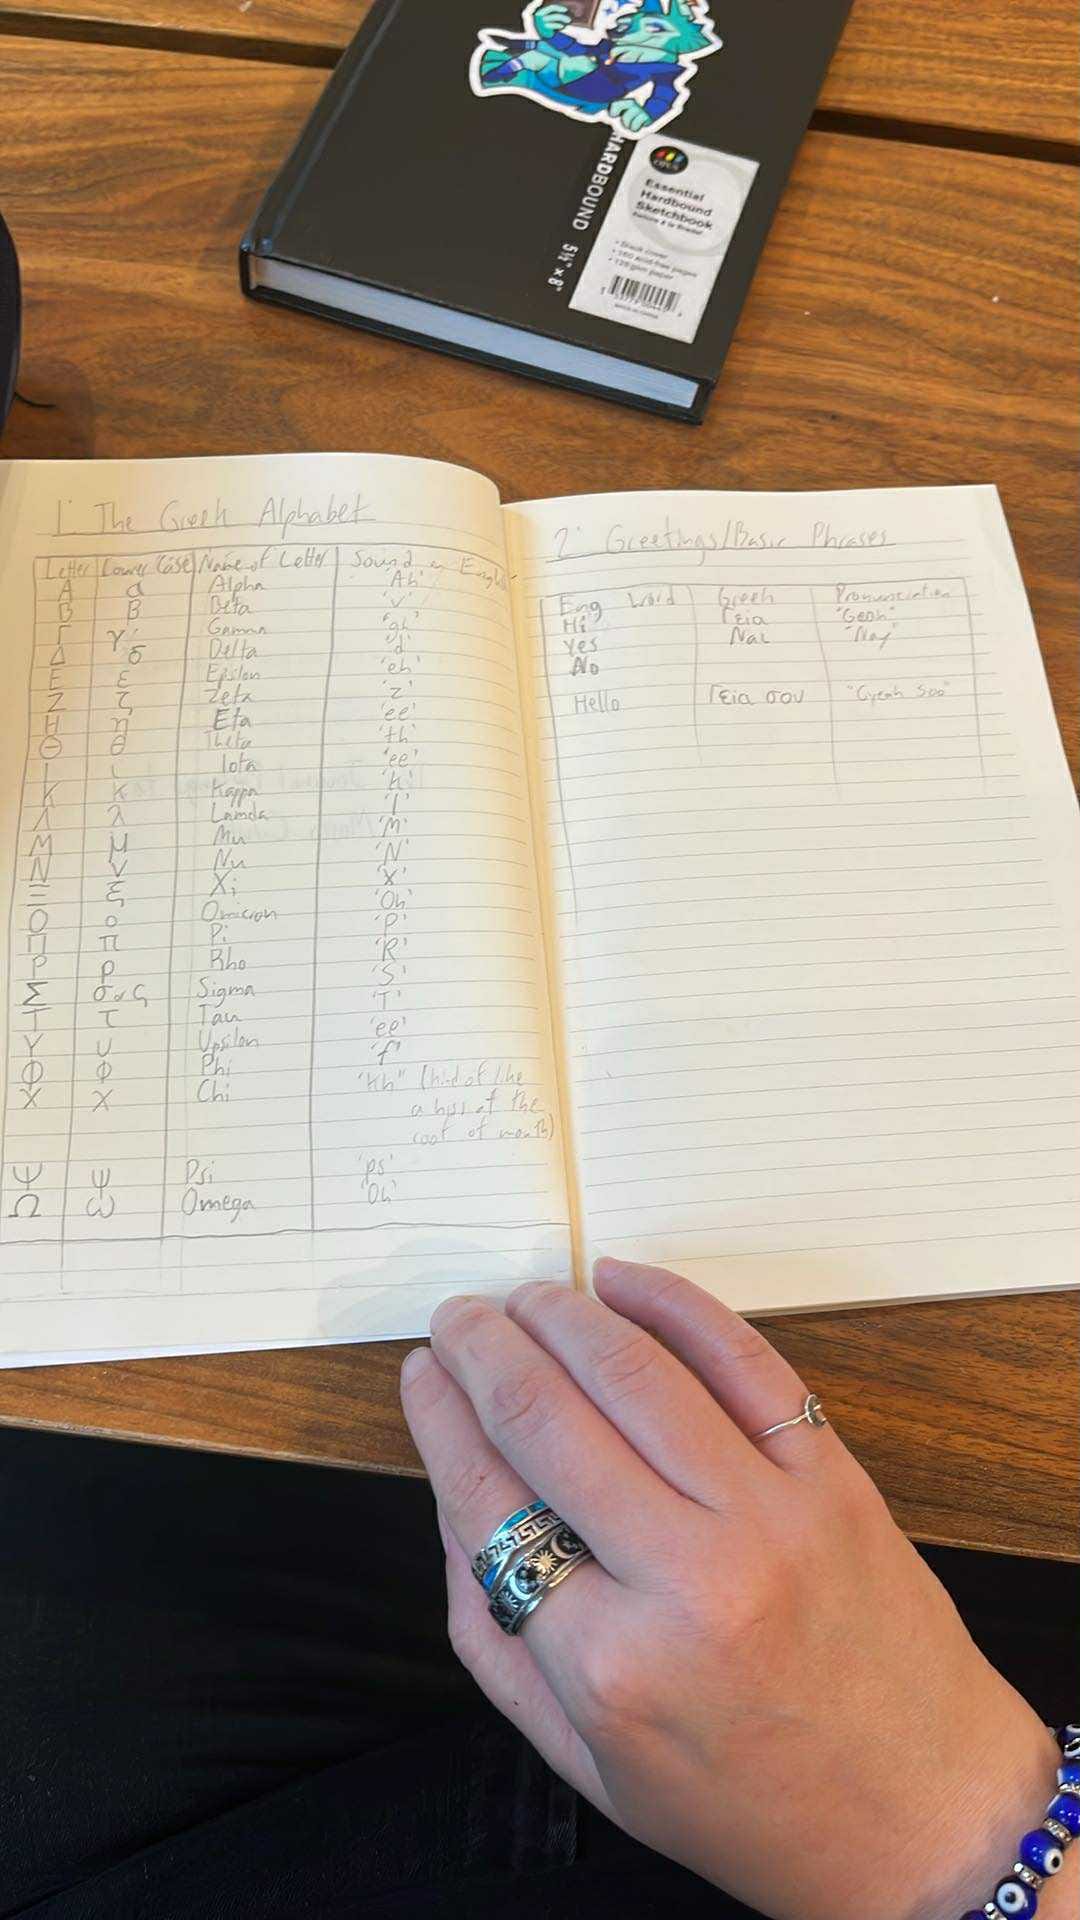 HARDBOUND 5½" x 8"
Essential
Hardbound
Sketchbook
• Black cover
• 160 acid-free pages
1. The Greek Alphabet
Letter Lower Case Name of Letter Sound in English
Α α Alpha 'Ah'
Β β Beta 'v'
Γ γ Gamma 'gh'
Δ δ Delta 'd'
Ε ε Epsilon 'eh'
Ζ ζ Zeta 'z'
Η η Eta 'ee'
Θ θ Theta 'th'
Ι ι Iota 'ee'
Κ κ Kappa 'k'
Λ λ Lamda 'l'
Μ μ Mu 'M'
Ν ν Nu 'N'
Ξ ξ Xi 'X'
Ο ο Omicron 'Oh'
Π π Pi 'P'
Ρ ρ Rho 'R'
Σ σ or ς Sigma 'S'
Τ τ Tau 'T'
Υ υ Upsilon 'ee'
Φ φ Phi 'f'
Χ χ Chi 'kh" (kind of like
a hiss at the
roof of mouth)
Ψ ψ Psi 'ps'
Ω ω Omega 'Oh'
2. Greetings/Basic Phrases
Eng Word Greek Pronunciation
Hi Γεια "Geah"
Yes Ναι "Nay"
No
Hello Γεια σου "Gyeah soo"